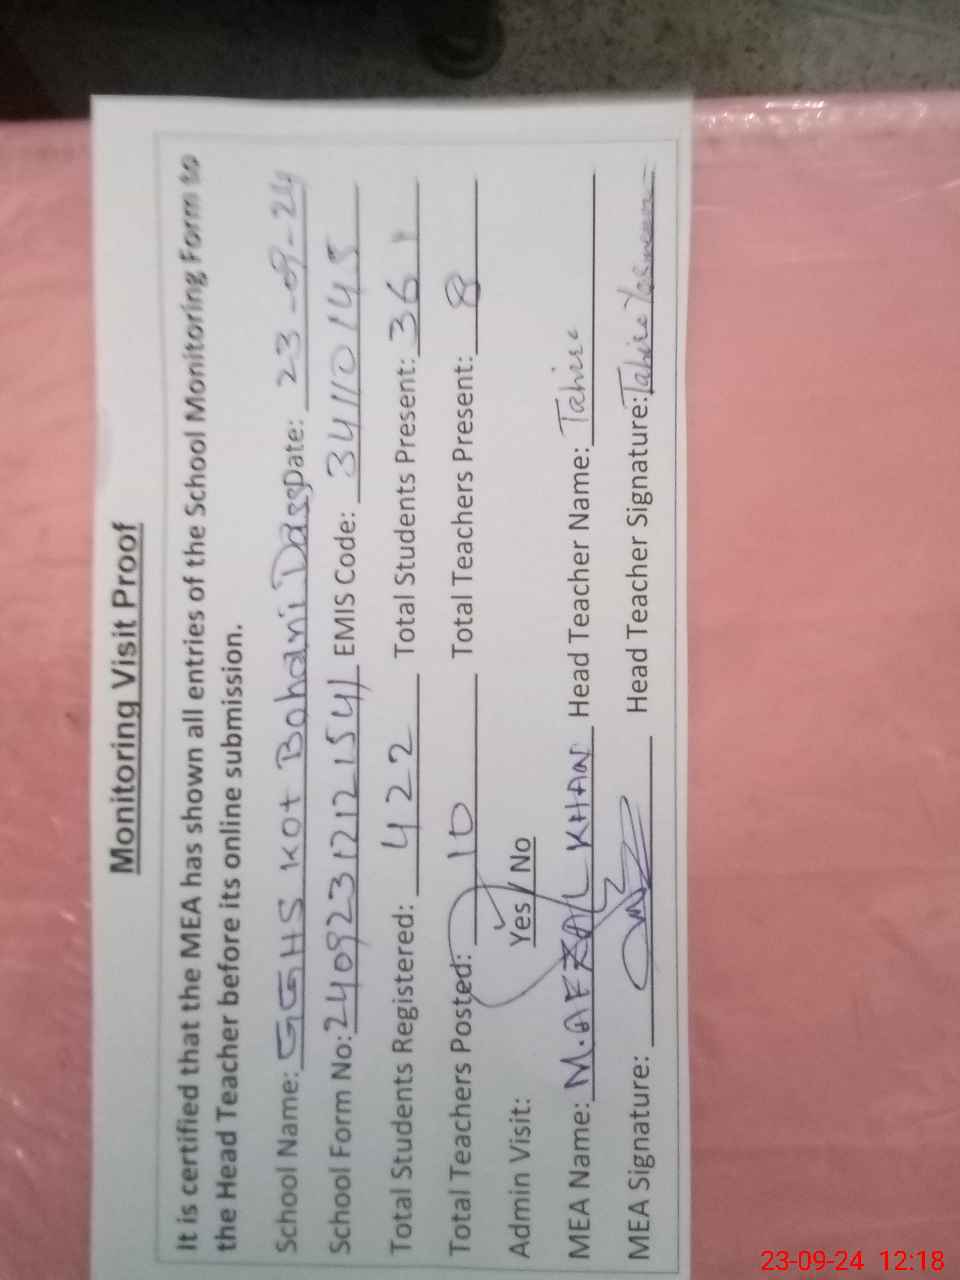 Monitoring Visit Proof
It is certified that the MEA has shown all entries of the School Monitoring Form to
the Head Teacher before its online submission.
School Name: GGHS KOT Bahani Dass Date: 23-09-24
School Form No: 24092312121541 EMIS Code: 34110145
Total Students Registered: 422 Total Students Present: 361
Total Teachers Posted: 10 Total Teachers Present: 8
Admin Visit: Yes / No
MEA Name: M.AFZAL KHAN Head Teacher Name: Tahira
MEA Signature: Head Teacher Signature: Tahira Yasmeen
23-09-24 12:18